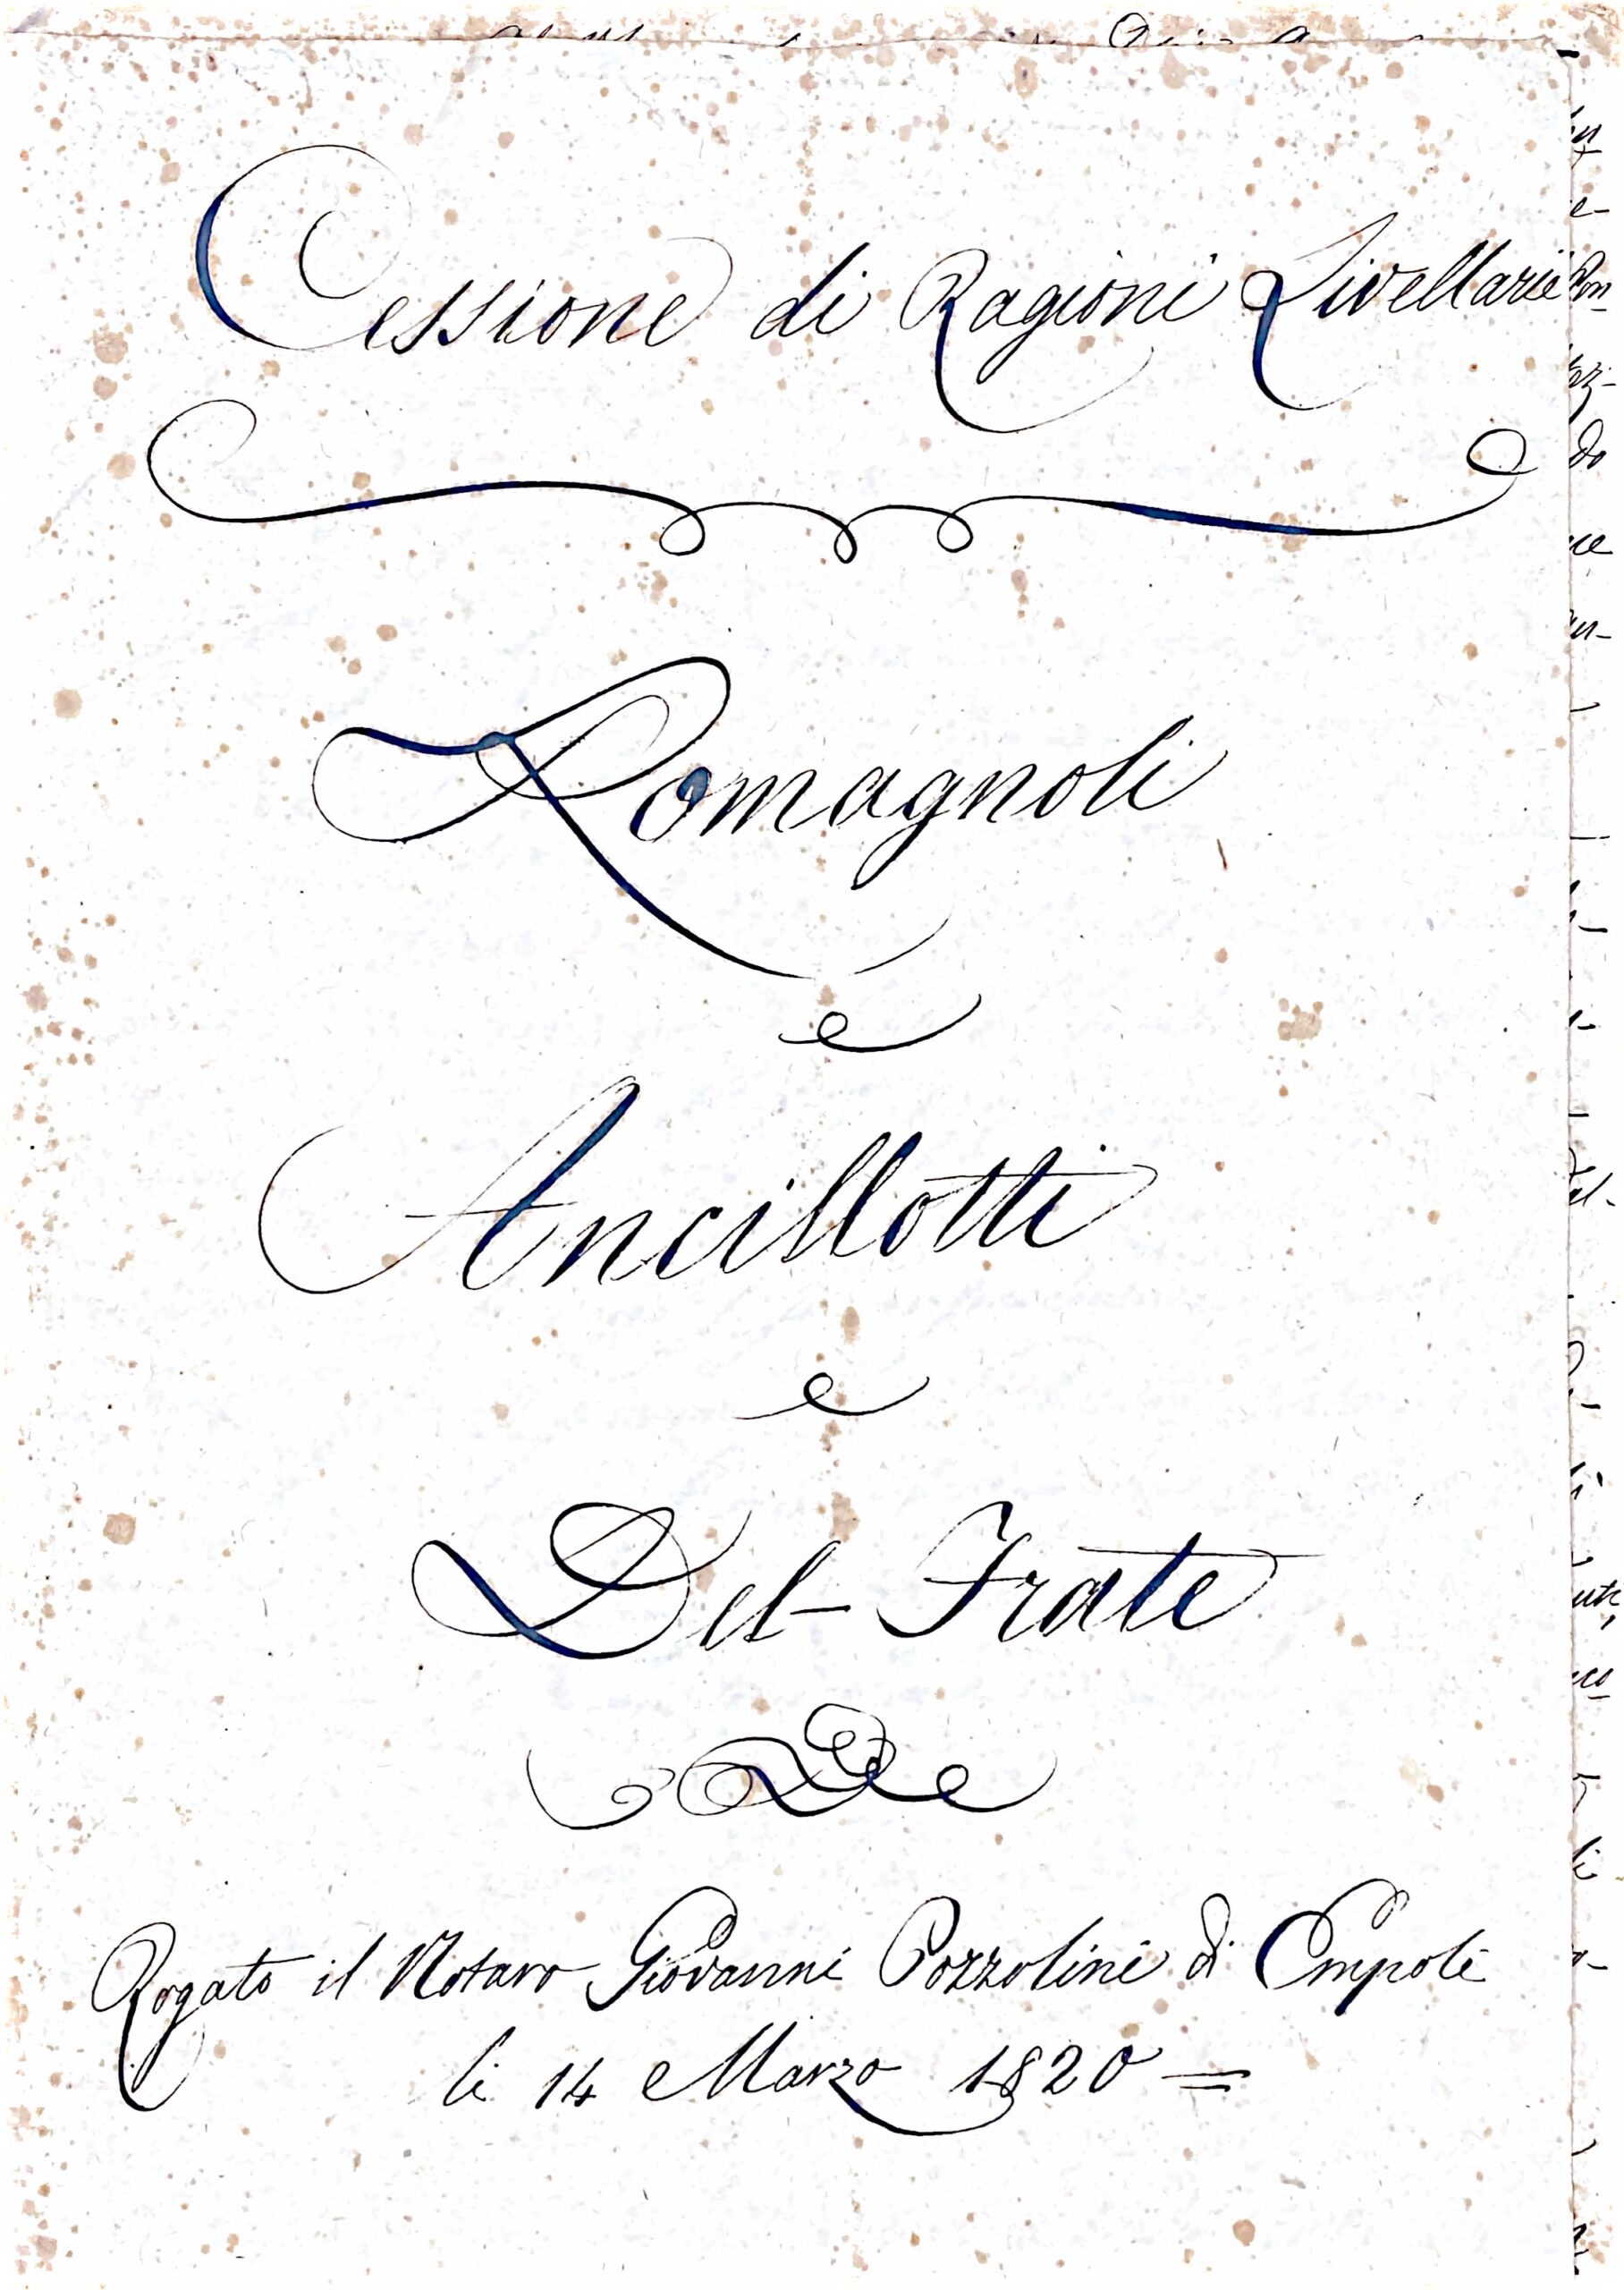 Cessione di Ragioni Livellarie
Romagnoli
e
Ancillotti
e
Del-Frate
Rogato il Notaro Giovanni Pozzolini di Empoli
li 14 Marzo 1820 =